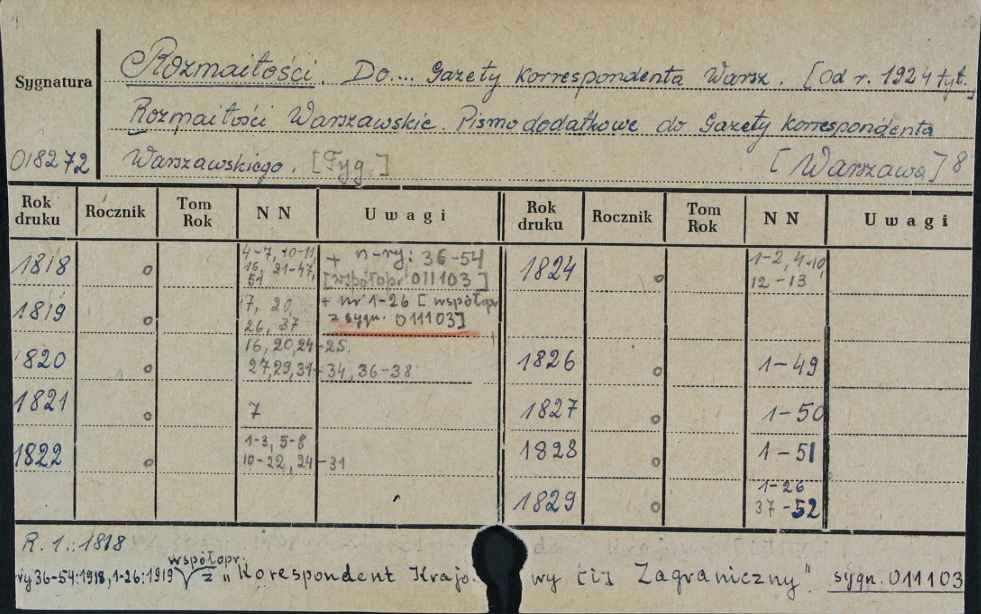 Sygnatura
Rozmaitości. Do... Gazety Korrespondenta Warsz. [Od r. 1924 tyt.
Rozmaitości Warszawskie. Pismo dodatkowe do Gazety Korrespondenta
018272 Warszawskiego. [Tyg.] [Warszawa] 8
Rok druku Rocznik Tom Rok N N Uwagi Rok druku Rocznik Tom Rok N N Uwagi
1818 4-7, 10-11, 16, 21-47, 51 + n-ry: 36-54 [współopr 011103]
1819 17, 20, 26, 37 + nr 1-26 [współopr z sygn. 011103]
1820 16, 20, 24-25. 27, 29, 31-34, 36-38
1821 7
1822 1-3, 5-8 10-22, 24-31
1824 1-2, 4-10, 12-13
1826 1-49
1827 1-50
1828 1-51
1829 1-26 37-52
R. 1.: 1818
współopr.
ry 36-54:1918, 1-26:1919 z "Korespondent Krajo wy i Zagraniczny". sygn. 011103